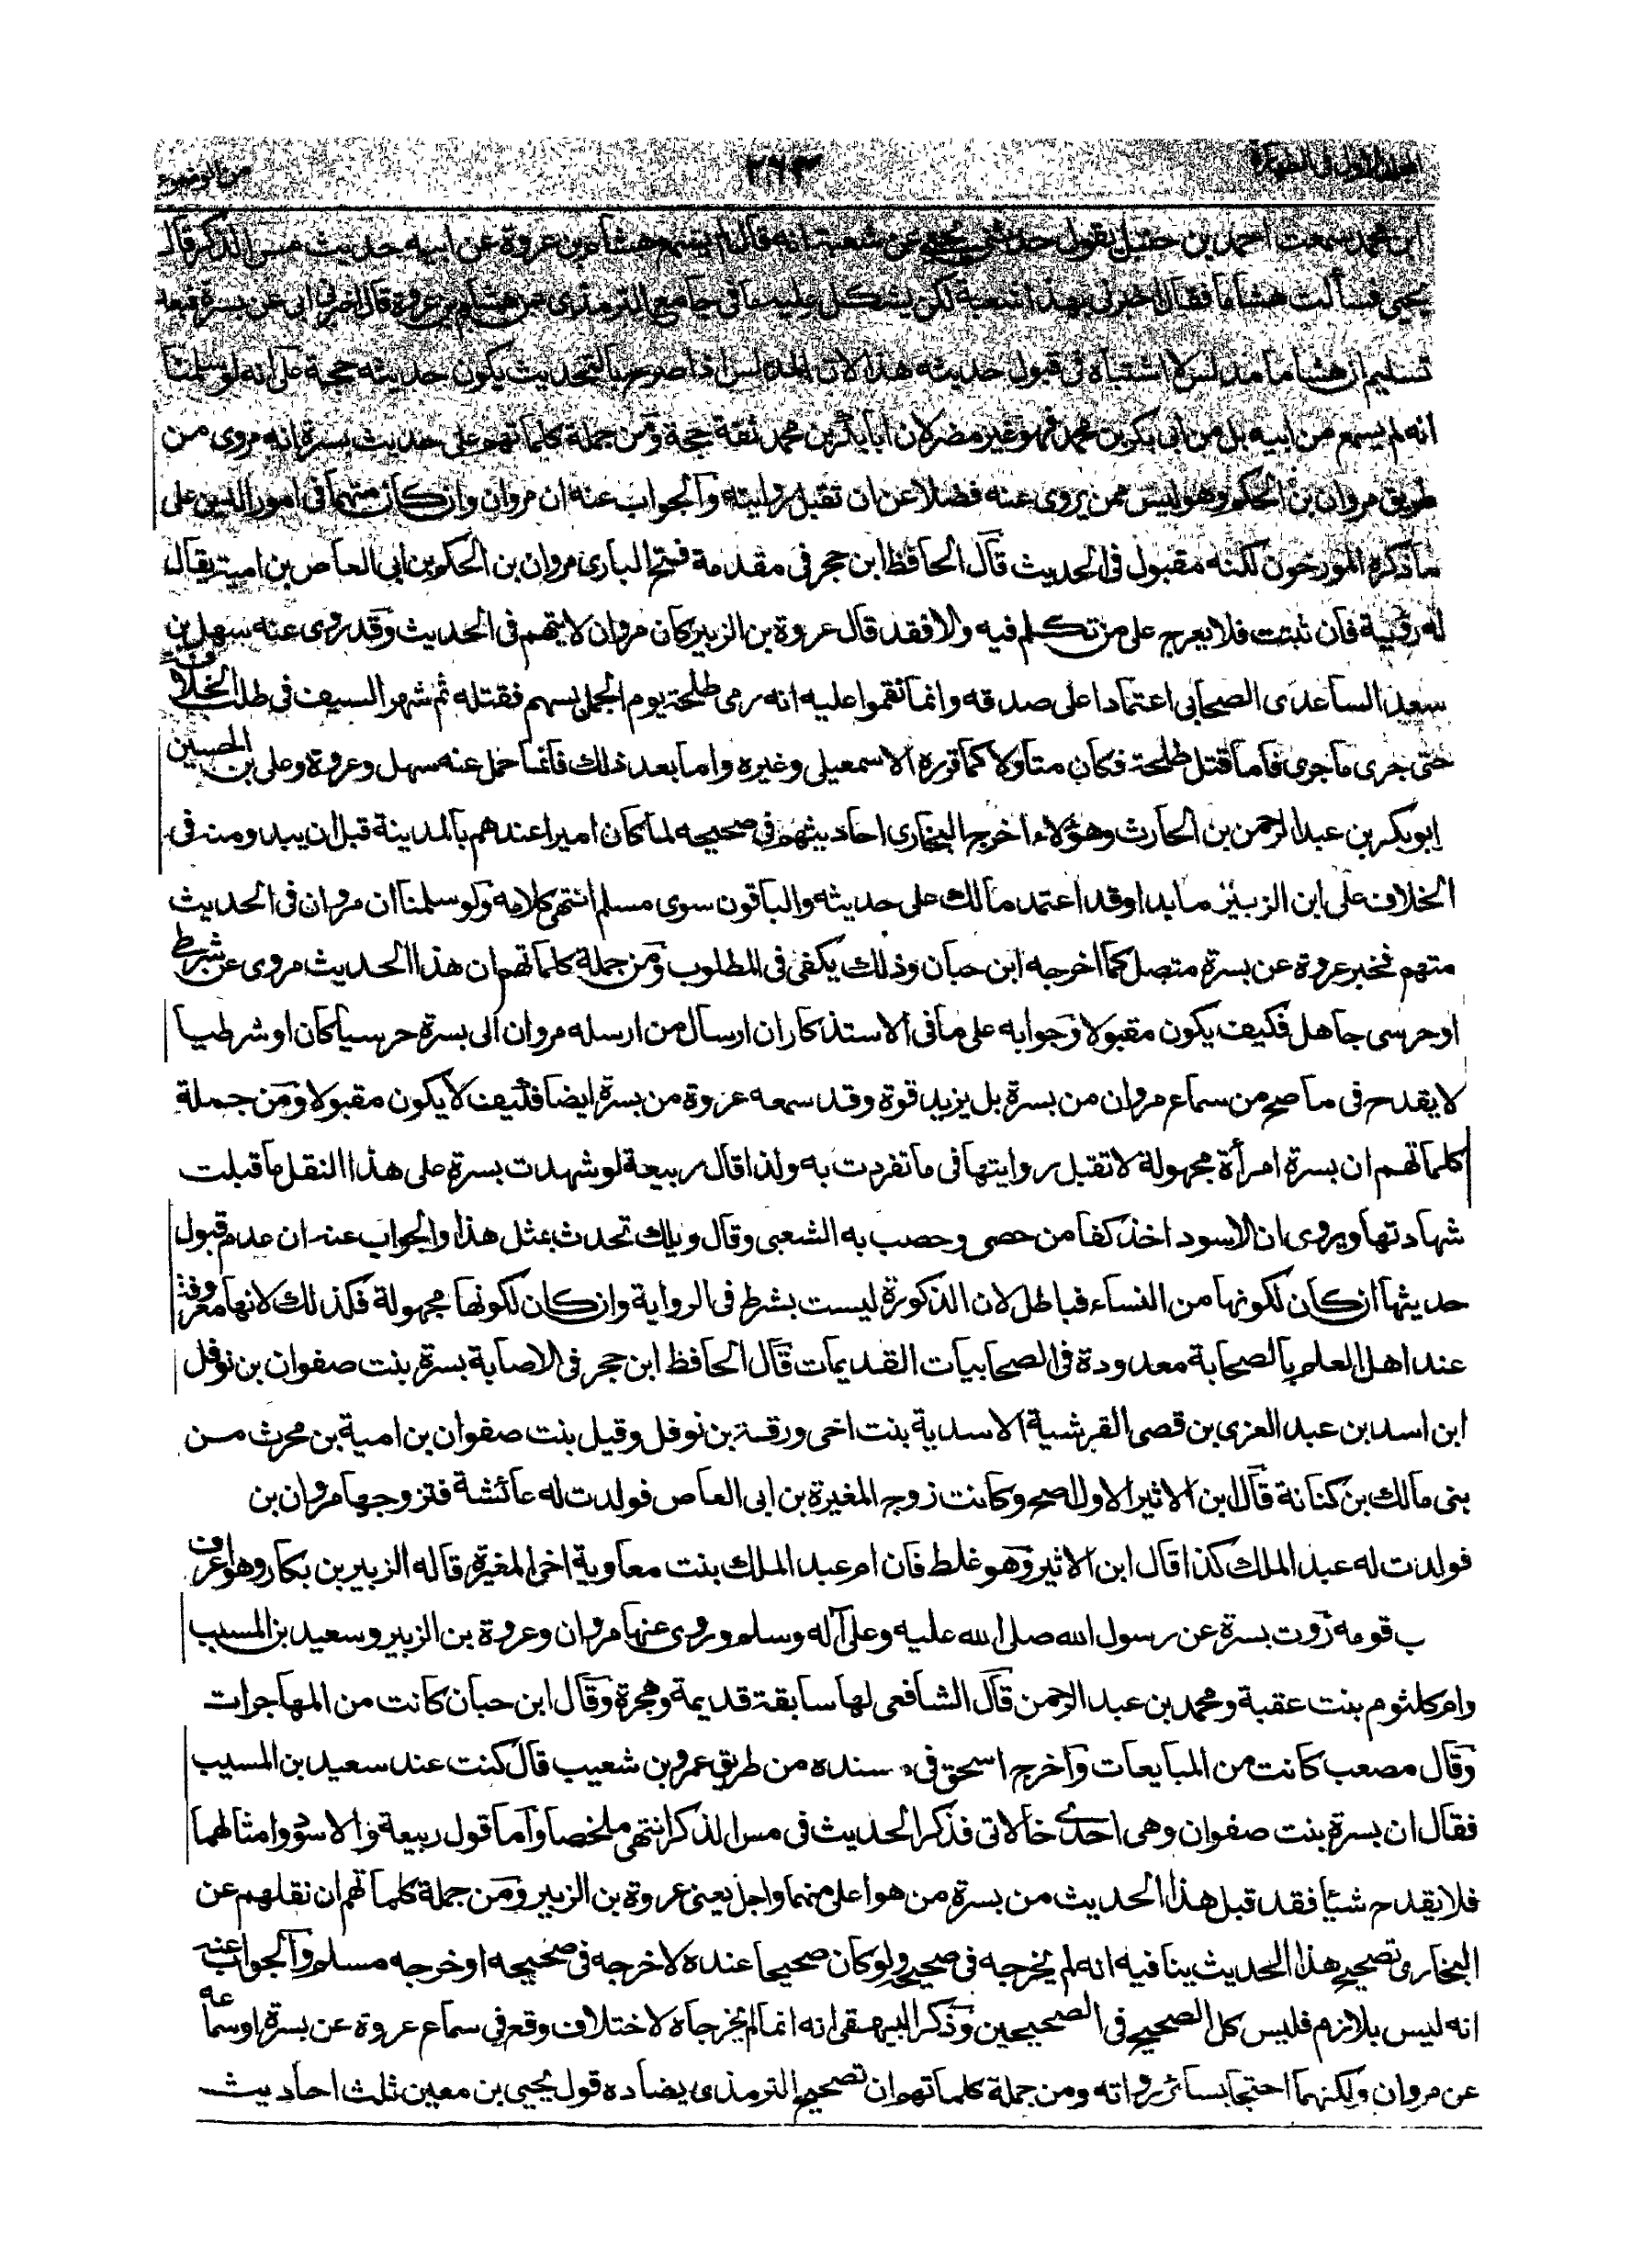 المجلد الاول في الطهارة ٢٦٣ من الوضوء
ابن محمد سمعت احمد بن حنبل يقول حدثني يحيى عن شعبة انه قال لم يسمع هشام بن عروة عن ابيه حديث مس الذكر قال
يحيى فسألت هشاما فقال اخبرني بهذا شعبة لكن يشكل عليه ما في جامع الترمذي عن هشام بن عروة قال اخبرني ابي عن بسرة فبعد
تسليم ان هشاما مدلس لا اشتباه في قبول حديثه هذا لان المدلس اذا صرح بالتحديث يكون حديثه حجة على انه لو سلمنا
انه لم يسمع من ابيه بل من ابي بكر بن محمد فهو غير مضر لان ابا بكر بن محمد ثقة حجة ومن جملة كلماتهم على حديث بسرة انه مروي من
طريق مروان بن الحكم وهو ليس ممن يروى عنه فضلا عن ان تقبل روايته والجواب عنه ان مروان وان كان متهما في امور الدين على
ما ذكره المورخون لكنه مقبول في الحديث قال الحافظ ابن حجر في مقدمة فتح الباري مروان بن الحكم بن ابي العاص بن امية يقال
له رؤية فان ثبتت فلا يعرج على من تكلم فيه والا فقد قال عروة بن الزبير كان مروان لا يتهم في الحديث وقد روى عنه سهل بن
سعد الساعدي الصحابي اعتمادا على صدقه وانما نقموا عليه انه رمى طلحة يوم الجمل بسهم فقتله ثم شهر السيف في طلب الخلافة
حتى جرى ما جرى فاما قتل طلحة فكان متاولا كما قرره الاسمعيلي وغيره واما بعد ذلك فانما حمل عنه سهل وعروة وعلي بن الحسين
ابوبكر بن عبد الرحمن بن الحارث وهؤلاء اخرج البخاري احاديثهم في صحيحه لما كان اميرا عندهم بالمدينة قبل ان يبدو منه في
الخلاف على ابن الزبير ما بدا وقد اعتمد مالك على حديثه والباقون سوى مسلم انتهى كلامه ولو سلمنا ان مروان في الحديث
متهم فخبر عروة عن بسرة متصل كما اخرجه ابن حبان وذلك يكفي في المطلوب ومن جملة كلماتهم ان هذا الحديث مروى عن شرطي
او حرسي جاهل فكيف يكون مقبولا وجوابه على ما في الاستذكار ان ارسال من ارسله مروان الى بسرة حرسيا كان او شرطيا
لا يقدح في ما صح من سماع مروان من بسرة بل يزيد قوة وقد سمعه عروة من بسرة ايضا فكيف لا يكون مقبولا ومن جملة
كلماتهم ان بسرة امرأة مجهولة لا تقبل روايتها في ما تفردت به ولذا قال ربيعة لو شهدت بسرة على هذا النقل ما قبلت
شهادتها ويروى ان الاسود اخذ كفا من حصى وحصب به الشعبي وقال ويلك تحدث بمثل هذا والجواب عنه ان عدم قبول
حديثها ان كان لكونها من النساء فباطل لان الذكورة ليست بشرط في الرواية وان كان لكونها مجهولة فكذلك لانها معروفة
عند اهل العلم بالصحابة معدودة في الصحابيات القديمات قال الحافظ ابن حجر في الاصابة بسرة بنت صفوان بن نوفل
ابن اسد بن عبد العزى بن قصي القرشية الاسدية بنت اخي ورقة بن نوفل وقيل بنت صفوان بن امية بن محرث من
بني مالك بن كنانة قال ابن الاثير الاول اصح وكانت زوج المغيرة بن ابي العاص فولدت له عائشة فتزوجها مروان بن
فولدت له عبد الملك كذا قال ابن الاثير وهو غلط فان ام عبد الملك بنت معاوية اخي المغيرة قاله الزبير بن بكار وهو اعرف
ب قومه روت بسرة عن رسول الله صلى الله عليه وعلى آله وسلم وروى عنها مروان وعروة بن الزبير وسعيد بن المسيب
وام كلثوم بنت عقبة ومحمد بن عبد الرحمن قال الشافعي لها سابقة قديمة وهجرة وقال ابن حبان كانت من المهاجرات
وقال مصعب كانت من المبايعات واخرج اسحق في سنده من طريق عمرو بن شعيب قال كنت عند سعيد بن المسيب
فقال ان بسرة بنت صفوان وهي احدى خالاتي فذكر الحديث في مس الذكر انتهى ملخصا واما قول ربيعة والاسود وامثالهما
فلا يقدح شيئا فقد قبل هذا الحديث من بسرة من هو اعلى منهما واجل يعني عروة بن الزبير ومن جملة كلماتهم ان نقلهم عن
البخاري تصحيح هذا الحديث ينافيه انه لم يخرجه في صحيحه ولو كان صحيحا عنده لاخرجه في صحيحه او خرجه مسلم والجواب عنه
انه ليس بلازم فليس كل الصحيح في الصحيحين وذكر البيهقي انه انما لم يخرجاه لاختلاف وقع في سماع عروة عن بسرة او سماعه
عن مروان ولكنهما احتجا بسائر رواته ومن جملة كلماتهم ان تصحيح الترمذي يضاده قول يحيى بن معين ثلث احاديث